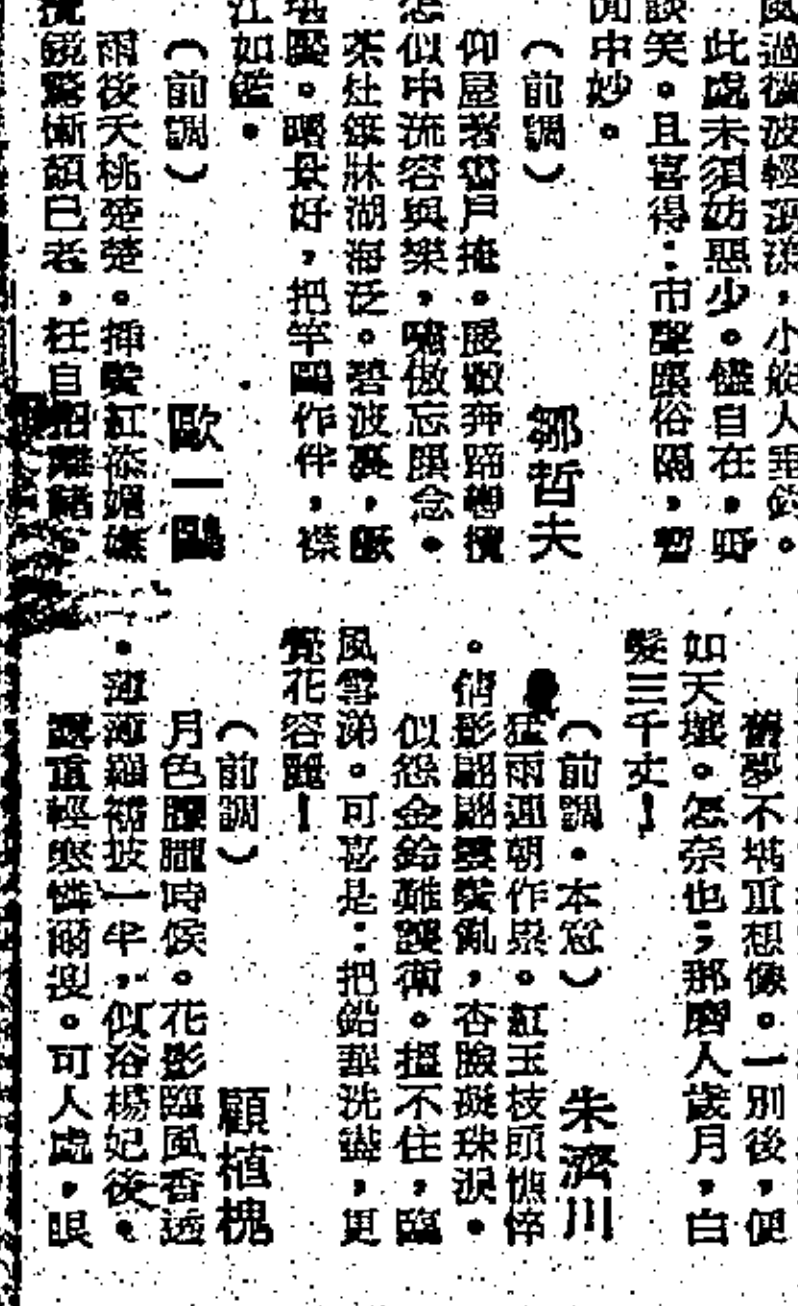 風過微波輕漪漾,小艇人垂釣。
此處未須妨惡少。儘自在,
談笑。且喜得:市聲隔,暫
閒中妙。
(前調)
鄒哲夫
仰屋著書戶掩。
怎似中流容與樂,嘯傲忘念。
茶灶筆牀湖海泛。碧波裏,
堪。好,把竿鷗作伴,襟
江如鑑。
(前調)
歐一鷗
雨後夭桃楚楚。插鬢紅媚嫵
鏡驚慚顏已老,枉自
舊夢不堪重想像。一別後,便
如天壤。怎奈也;那磨人歲月,白
髮三千丈!
(前調・本意)
朱濟川
猛雨連朝作祟。紅玉枝頭憔悴
。倩影翩翩雲鬢亂,杏臉凝珠淚。
似怨金鈴難護衛。搵不住,臨
風雪涕。可喜是:把鉛華洗盡,更
覺花容麗!
(前調)
顧植槐
月色朦朧時候。花影臨風香透
。薄薄羅襦披一半,似浴楊妃後。
重輕寒憐爾瘦。可人處,眼